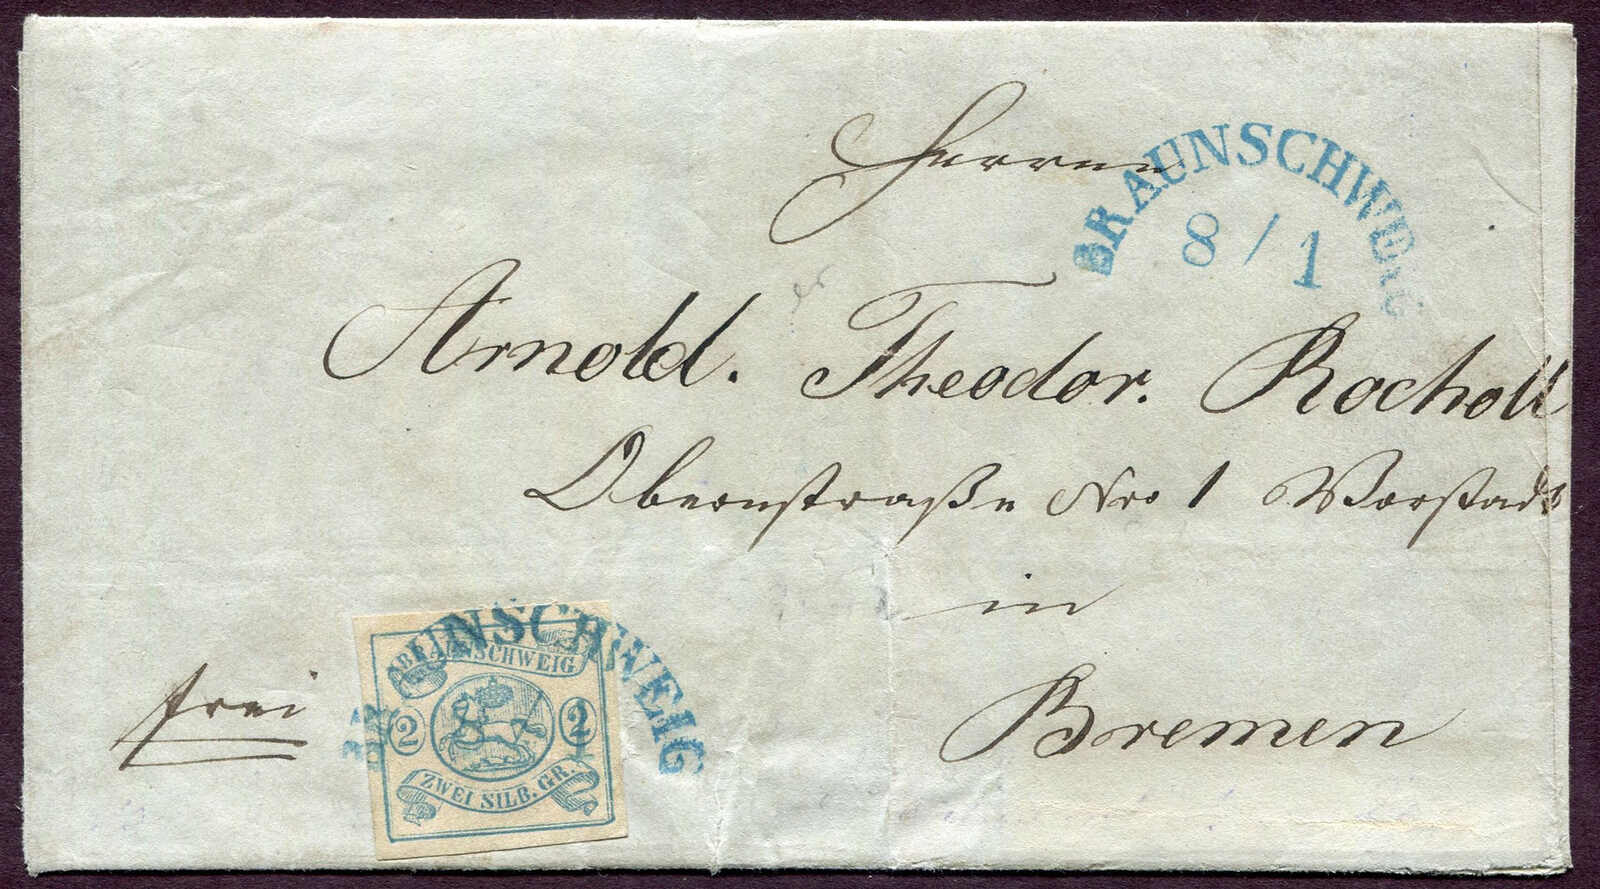 Herrn
BRAUNSCHWEIG
8/1
Arnold. Theodor. Rocholl
Obernstraße Nro 1 Vorstadt
in
Bremen
frei
BRAUNSCHWEIG
BRAUNSCHWEIG
2 2
ZWEI SILB. GR.